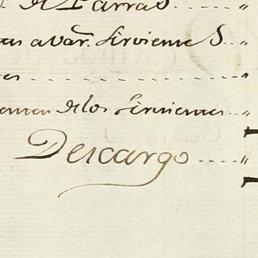 de Parras
a var.s sirvientes
de los sirvientes
Descargo